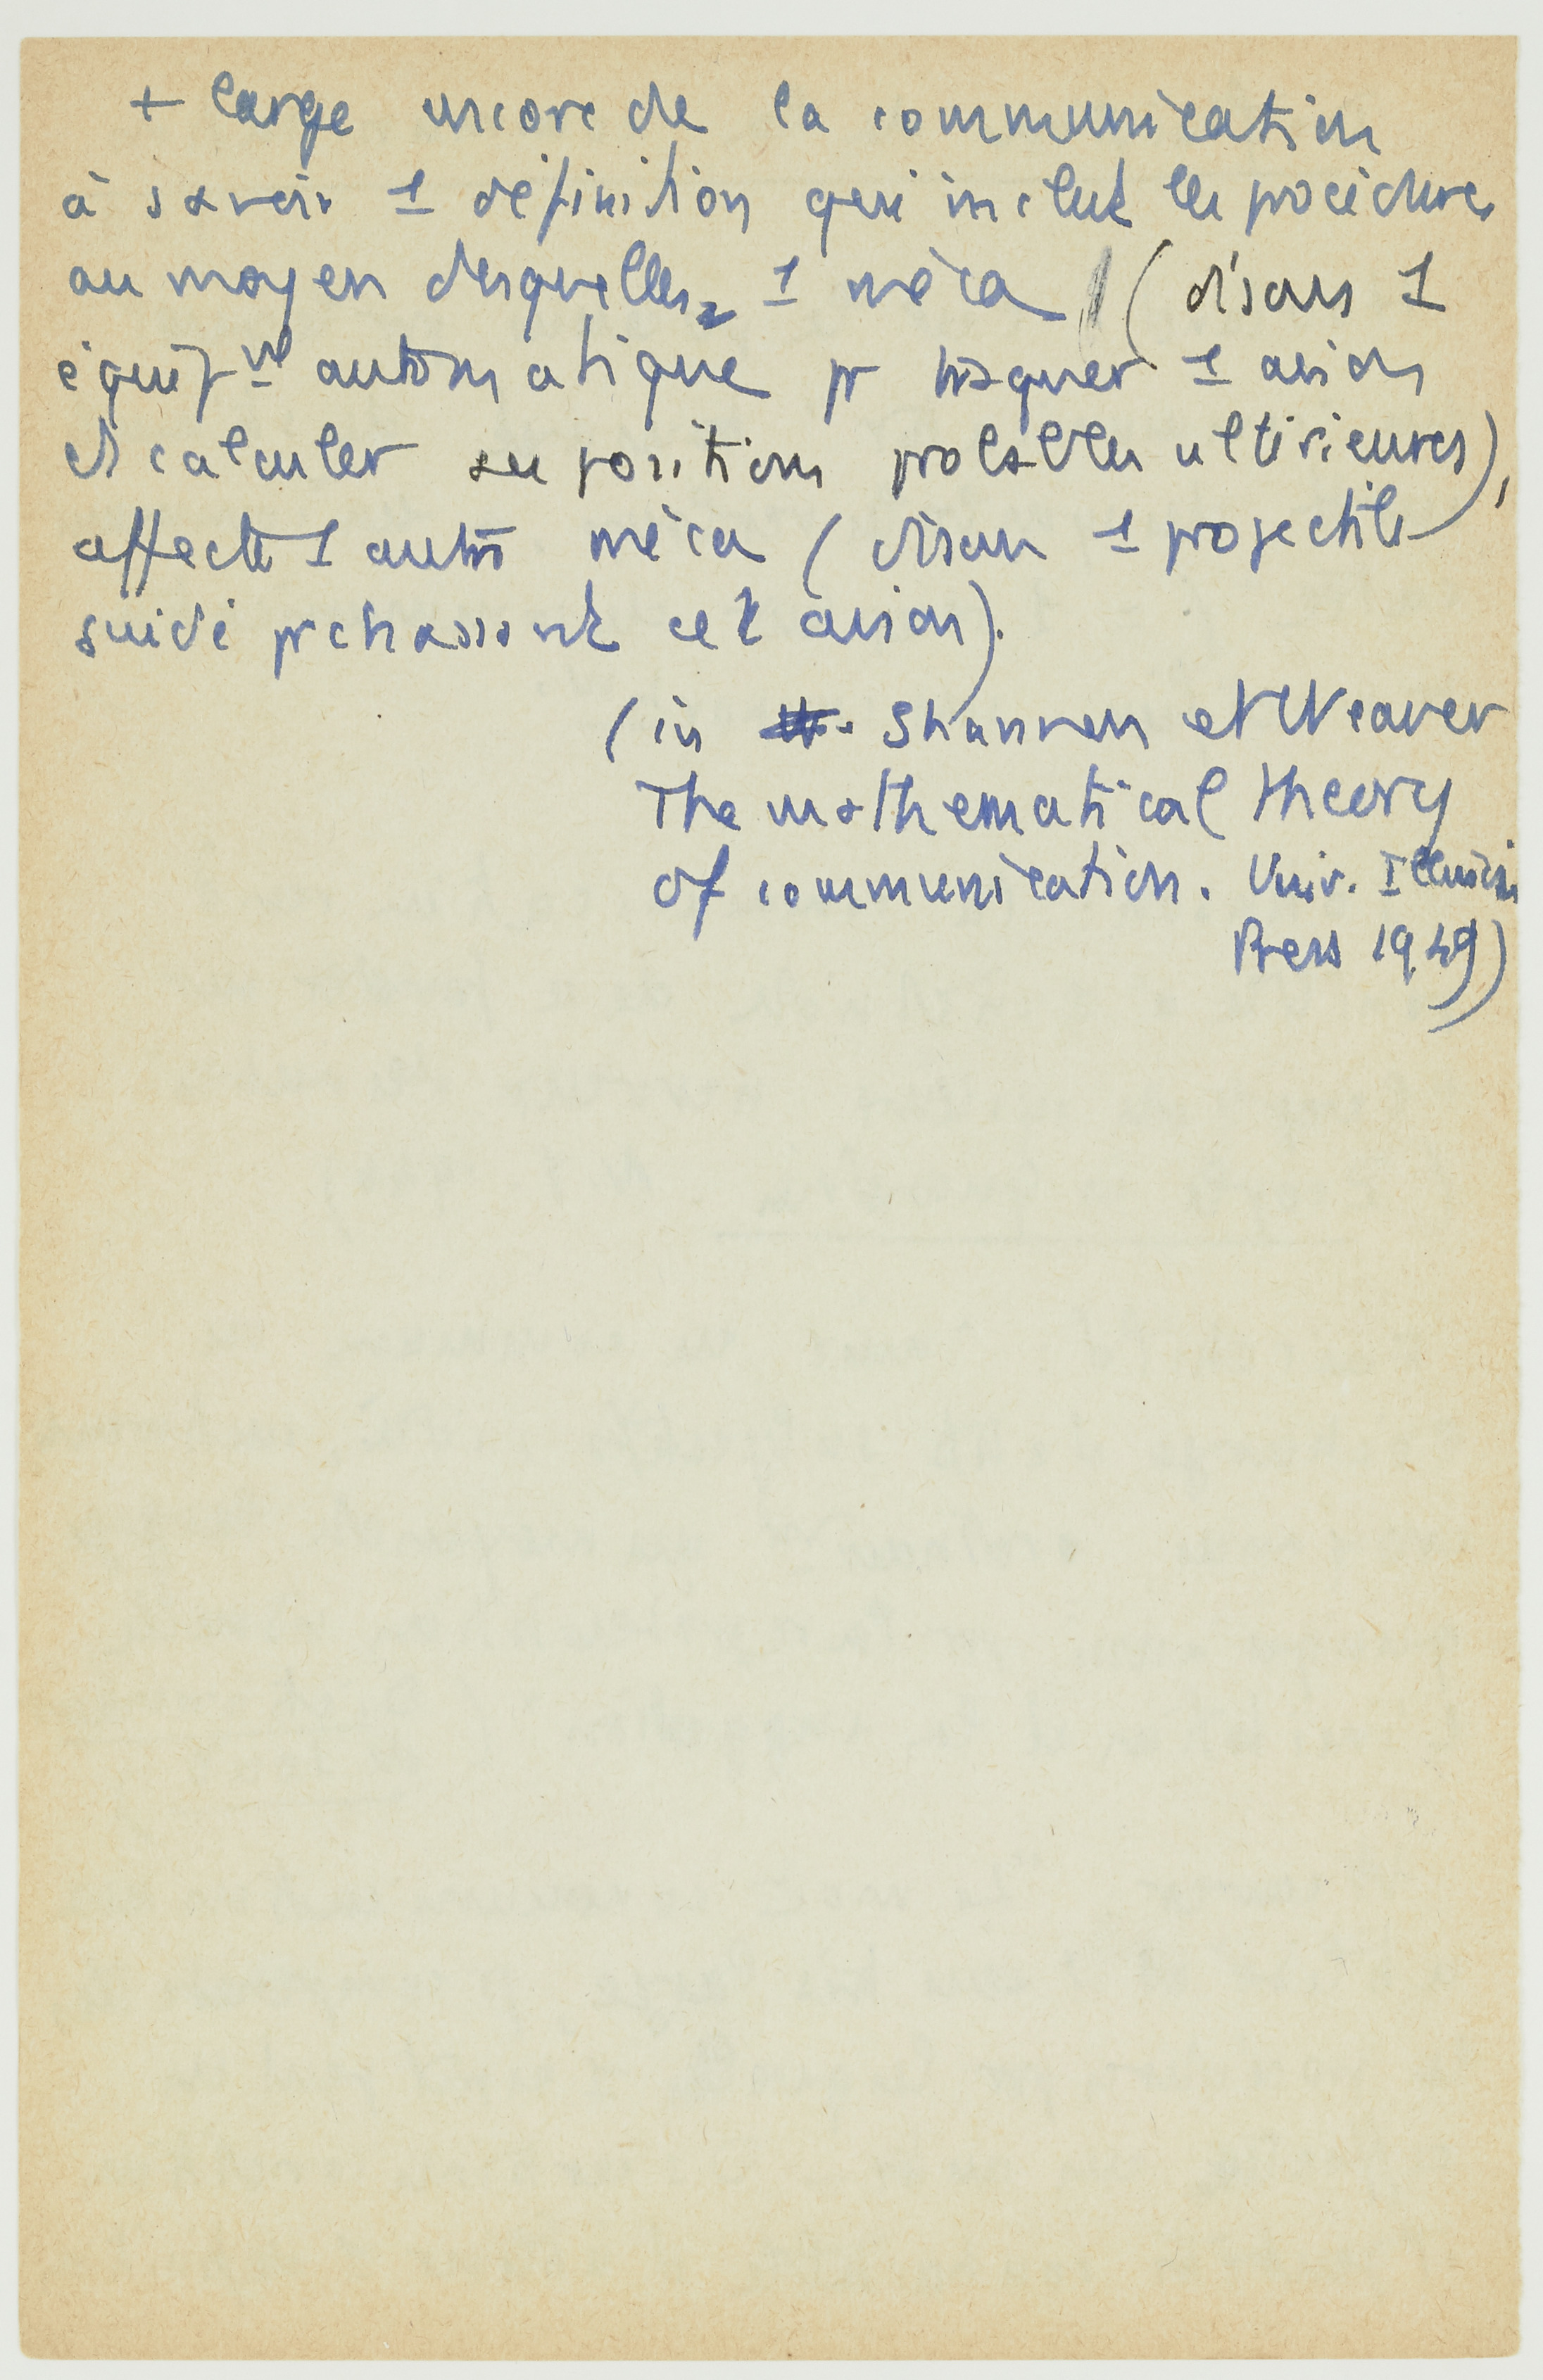 + large encore de la communication
à savoir 1 définition qui inclut les procédures
au moyen desquelles 1 méca (disons 1
équip^nt automatique pr traquer 1 avion
et calculer ses positions probables ultérieures),
affecte 1 autre méca (disons 1 projectile
guidé pr chassant cet avion).
(in Shannon et Weaver
The mathematical theory
of communication. Univ. Illinois
Press 1949)